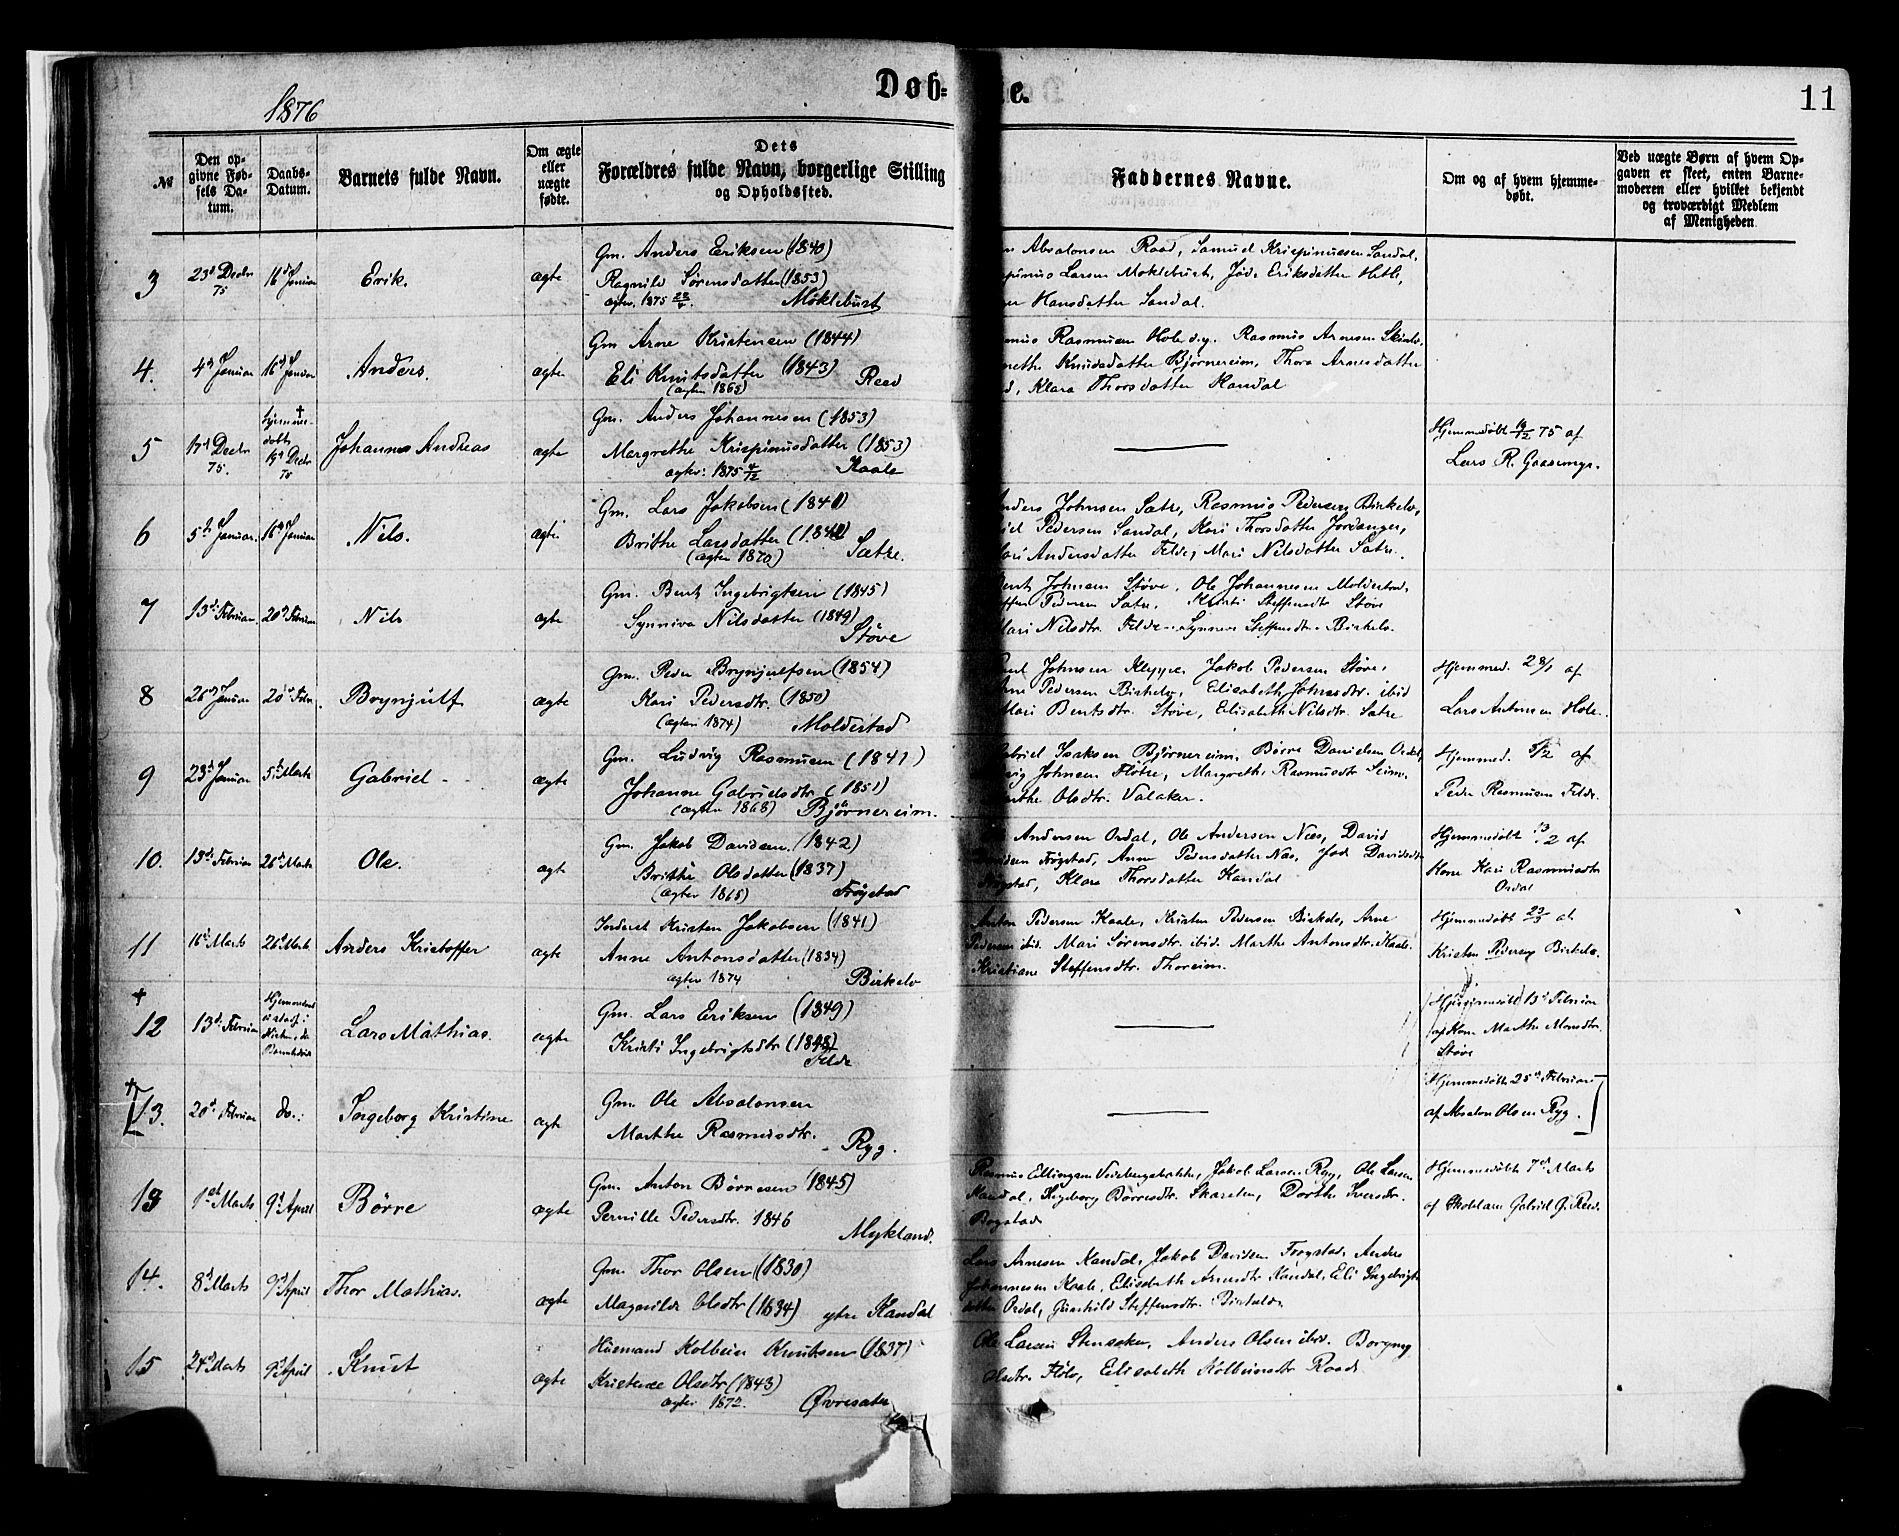 1876
Døb-
e.
11
№
Den op-
givne Fød-
sels Da-
tum.
Daabs-
Datum.
Barnets fulde Navn.
Om ægte
eller
uægte
fødte.
Dets
Forældres fulde Navn, borgerlige Stilling
og Opholdssted.
Faddernes Navne.
Om og af hvem hjemme-
døbt.
Ved uægte Børn af hvem Op-
gaven er skeet, enten Barne-
moderen eller hvilket bekjendt
og troværdigt Medlem
af Menigheden
3
23d Decbr
75
16d Januar
Erik.
ægte
Gm. Anders Eriksen (1840)
Ragnild Sørensdatter (1853)
Møklebust
n Absalonsen Raad, Samuel Krispinussen Sandal,
pinus Larsen Moklebust, Eriksdatter
Hansdatter Sandal.
4.
4d Januar
16d Januar
Anders.
ægte
Gm Arne Kristensen (1844)
Eli Knutsdatter (1843) Reed
(ægtev 1865)
mus Rasmusen Hole Rasmus Arnesen
nethe Knudsdatter Bjørnereim, Thora Arnesdatter
d, Klara Thorsdatter Kandal
5
17d Decbr
75.
Hjemme-
døbt
19d Decbr
75
Johannes Andreas
ægte
Gm. Anders Johannesen (1853)
Margrethe Krispinusdatter (1853)
ægtev: 1875 Kaale
Hjemmedøbt 19/12 75 af
Lars R.
6
5d Januar.
16d Januar
Nils.
ægte
Gm. Lars Jakobsen (1841)
Brithe Larsdatter
(ægtev 1870) Sætre.
nders Johnsen Satre, Rasmus Pedersen Birkelo,
Pedersen Sandal, Kari Thorsdatter Jordanger,
Mari Andersdatter Felde, Mari Nilsdatter Satre.
7
13d Februar
20d Februar
Nils
ægte
Gm. Bent Ingebrigtsen (1845)
Synniva Nilsdatter (1849)
Støve
Bent Johnsen Støve, Ole Johannesen Moldestad,
ffen Pedersen Satre, Kristi Steffensdtr Støve
Mari Nilsdtr. Felde Synneve Steffensdtr. Birkelo.
8
26d Januar
20d Febr.
Brynjulf
ægte
Gm. Peder Brynjulfsen (1854)
Kari Pedersdtr. (1850)
(ægtev 1874) Moldestad
Johnsen Kleppe, Jakob Pedersen Støve,
Pedersen Birkelo, Elisabeth Johnsdtr. ibid
Mari Bentsdtr. Støve, Elisabeth Nilsdtr. Satre
Hjemmed. 28/1 af
Lars Antonsen Hole.
9
23d Januar
5d Marts
Gabriel
ægte
Gm. Ludvig Rasmusen (1841)
Johanne Gabrielsdtr (1851)
(ægtev 1868) Bjørnereim.
Gabriel Isaksen Bjørnereim, Børre Danielsen
Johnsen Fløtre, Margrethe Rasmusdtr Seim,
Olsdtr. Valaker.
Hjemmed. 5/2 af
Peder Rasmusen Felde.
10.
13d Februar
26d Marts
Ole.
ægte
Gm. Jakob Davidsen. (1842)
Brithe Olsdatter (1837)
(ægtev 1865) Frøystad
Andersen Ordal, Ole Andersen Næs, David
Davidsen Frøystad, Anne Pedersdatter Næs,
Klara Thorsdatter Kandal
Hjemmedøbt 13/2 af
Kone Kari Rasmusdtr
Ordal
11
16d Marts
26d Marts
Anders Kristoffer
ægte
Inderst Kristen Jakobsen (1841)
Anne Antonsdatter (1834)
ægtev 1874 Birkelo
Anton Pedersen Kaale, Kristen Pedersen Birkelo, Arne
Pedersen ibid. Mari Sørensdtr. ibid. Marthe Antonsdtr. Kaale.
Kristiane Steffensdtr. Thoreim.
Hjemmedøbt 23/3 af
Kristen Pedersen Birkelo.
12
13d Februar
Lars Mathias.
ægte
Gm. Lars Eriksen (1849)
Kristi Ingebrigtsdtr (1848)
Felde
(Hjemmedøbt) 13d Februar
af Kone Marthe Monsdtr.
Støve
13.
20d Februar
do.:
Ingeborg Kristine
ægte
Gm. Ole Absalonsen
Marthe Rasmusdtr.
Ryg.
Hjemmedøbt 25d Februar
af Absalon Olsen Ryg.
13
1st Marts
9d April
Børre
ægte
Gm. Anton Børresen (1845)
Pernille Pedersdtr. 1846
Mykland.
Rasmus Ellingsen Jakob Larsen Ryg, Ole Larsen
Kandal, Ingeborg Børresdtr. Skarsten, Dorthe Iversdtr.
Bogstad
Hjemmedøbt 7d Marts
af Skolelærer Gabriel G. Reed.
14.
8d Marts
9d April
Thor Mathias.
ægte
Gm. Thor Olsen (1830)
Magnilde Olsdtr (1834) ytre Kandal
Lars Arnesen Kandal, Jakob Davidsen Frøystad, Anders
Johannesen Kaale, Elisabeth Arnesdtr Kandal, Eli Ingebrigts
datter Ordal, Gunhild Steffensdtr.
15
24d Marts
9d April
Knut
ægte
Huusmand Kolbein Knutsen (1837)
Kristense Olsdtr (1843)
ægtev 1872. Øvresætre
Ole Larsen Stensaker, Anders Olsen ibid. Borgny
Olsdtr. Elisabeth Kolbeinsdtr Raad